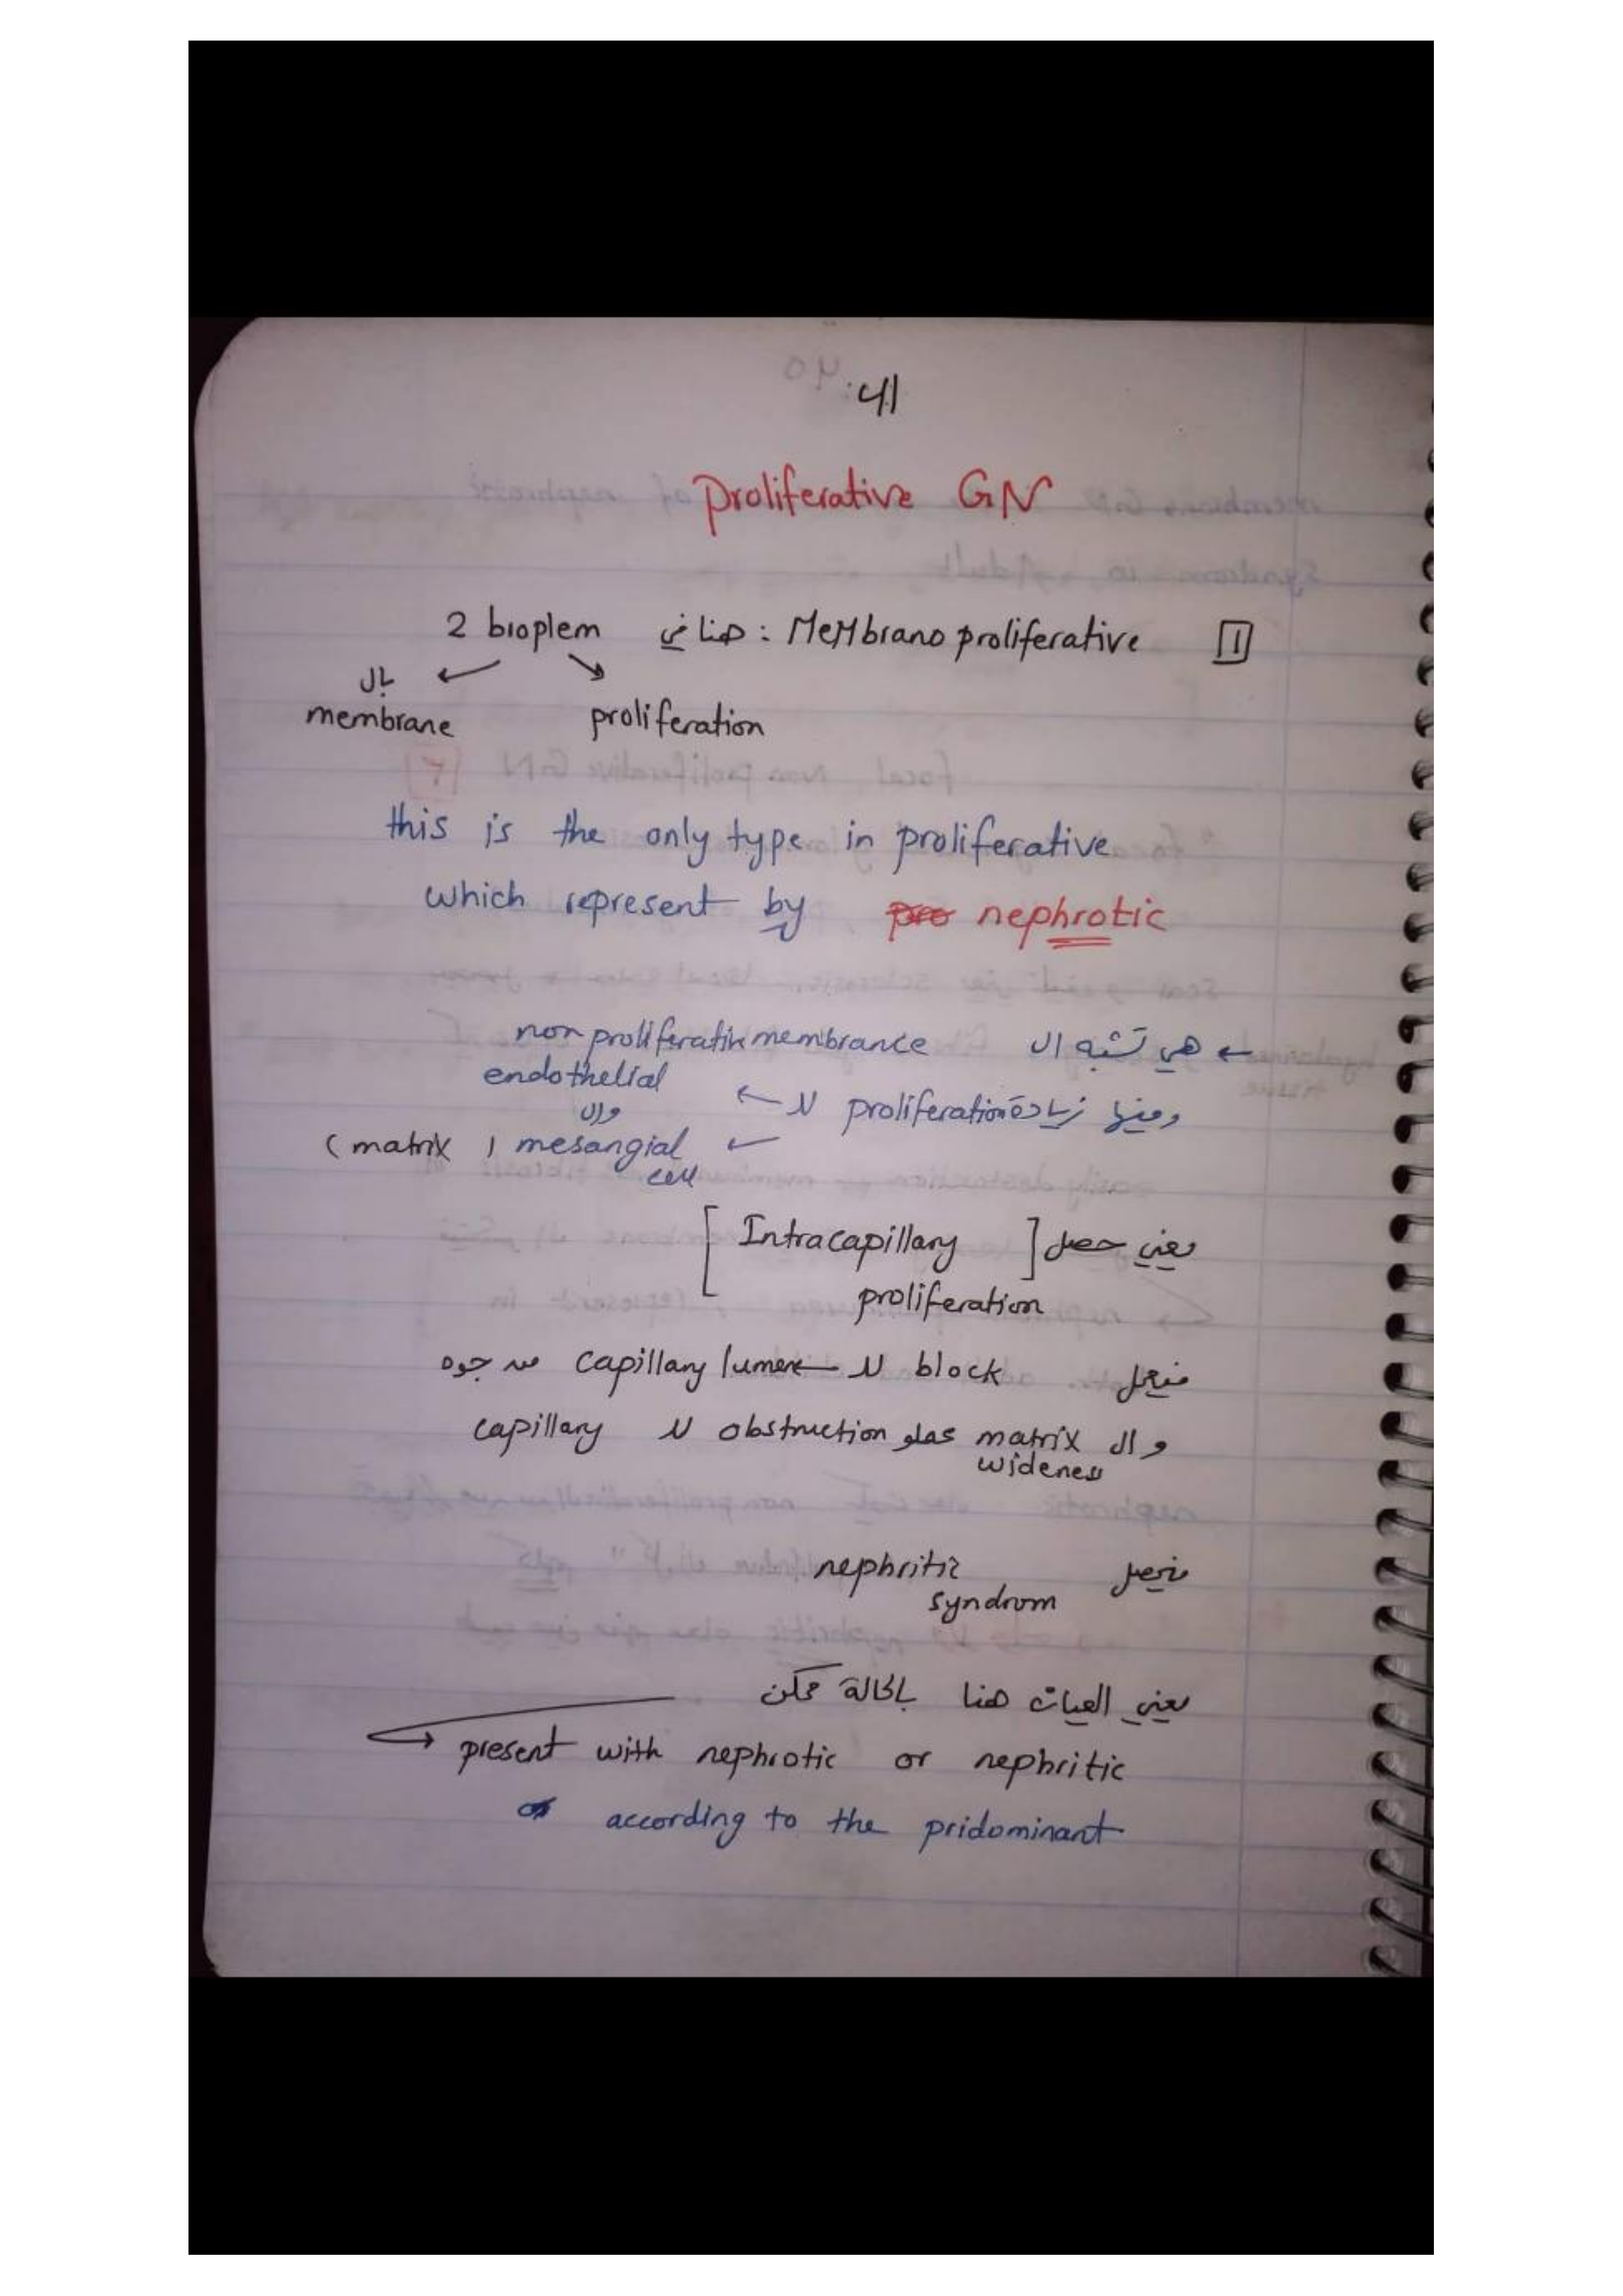 41
proliferative GN
1 MeMbrano proliferative : هنا في 2 bioplem
بال membrane
proliferation
this is the only type in proliferative
which represent by pro nephrotic
← هي تشبه ال non proliferative membrance
وفيها زيادة proliferation لل ← endothelial
وال
← mesangial cell ( matrix )
يعني حصل [ Intracapillary
proliferation ]
فيعمل block لل capillary lumen من جوه
و ال matrix عملو obstruction لل capillary
wideness
فيحصل nephritic
syndrom
يعني العيان هنا بالحالة ممكن
present with nephrotic or nephritic
according to the pridominant